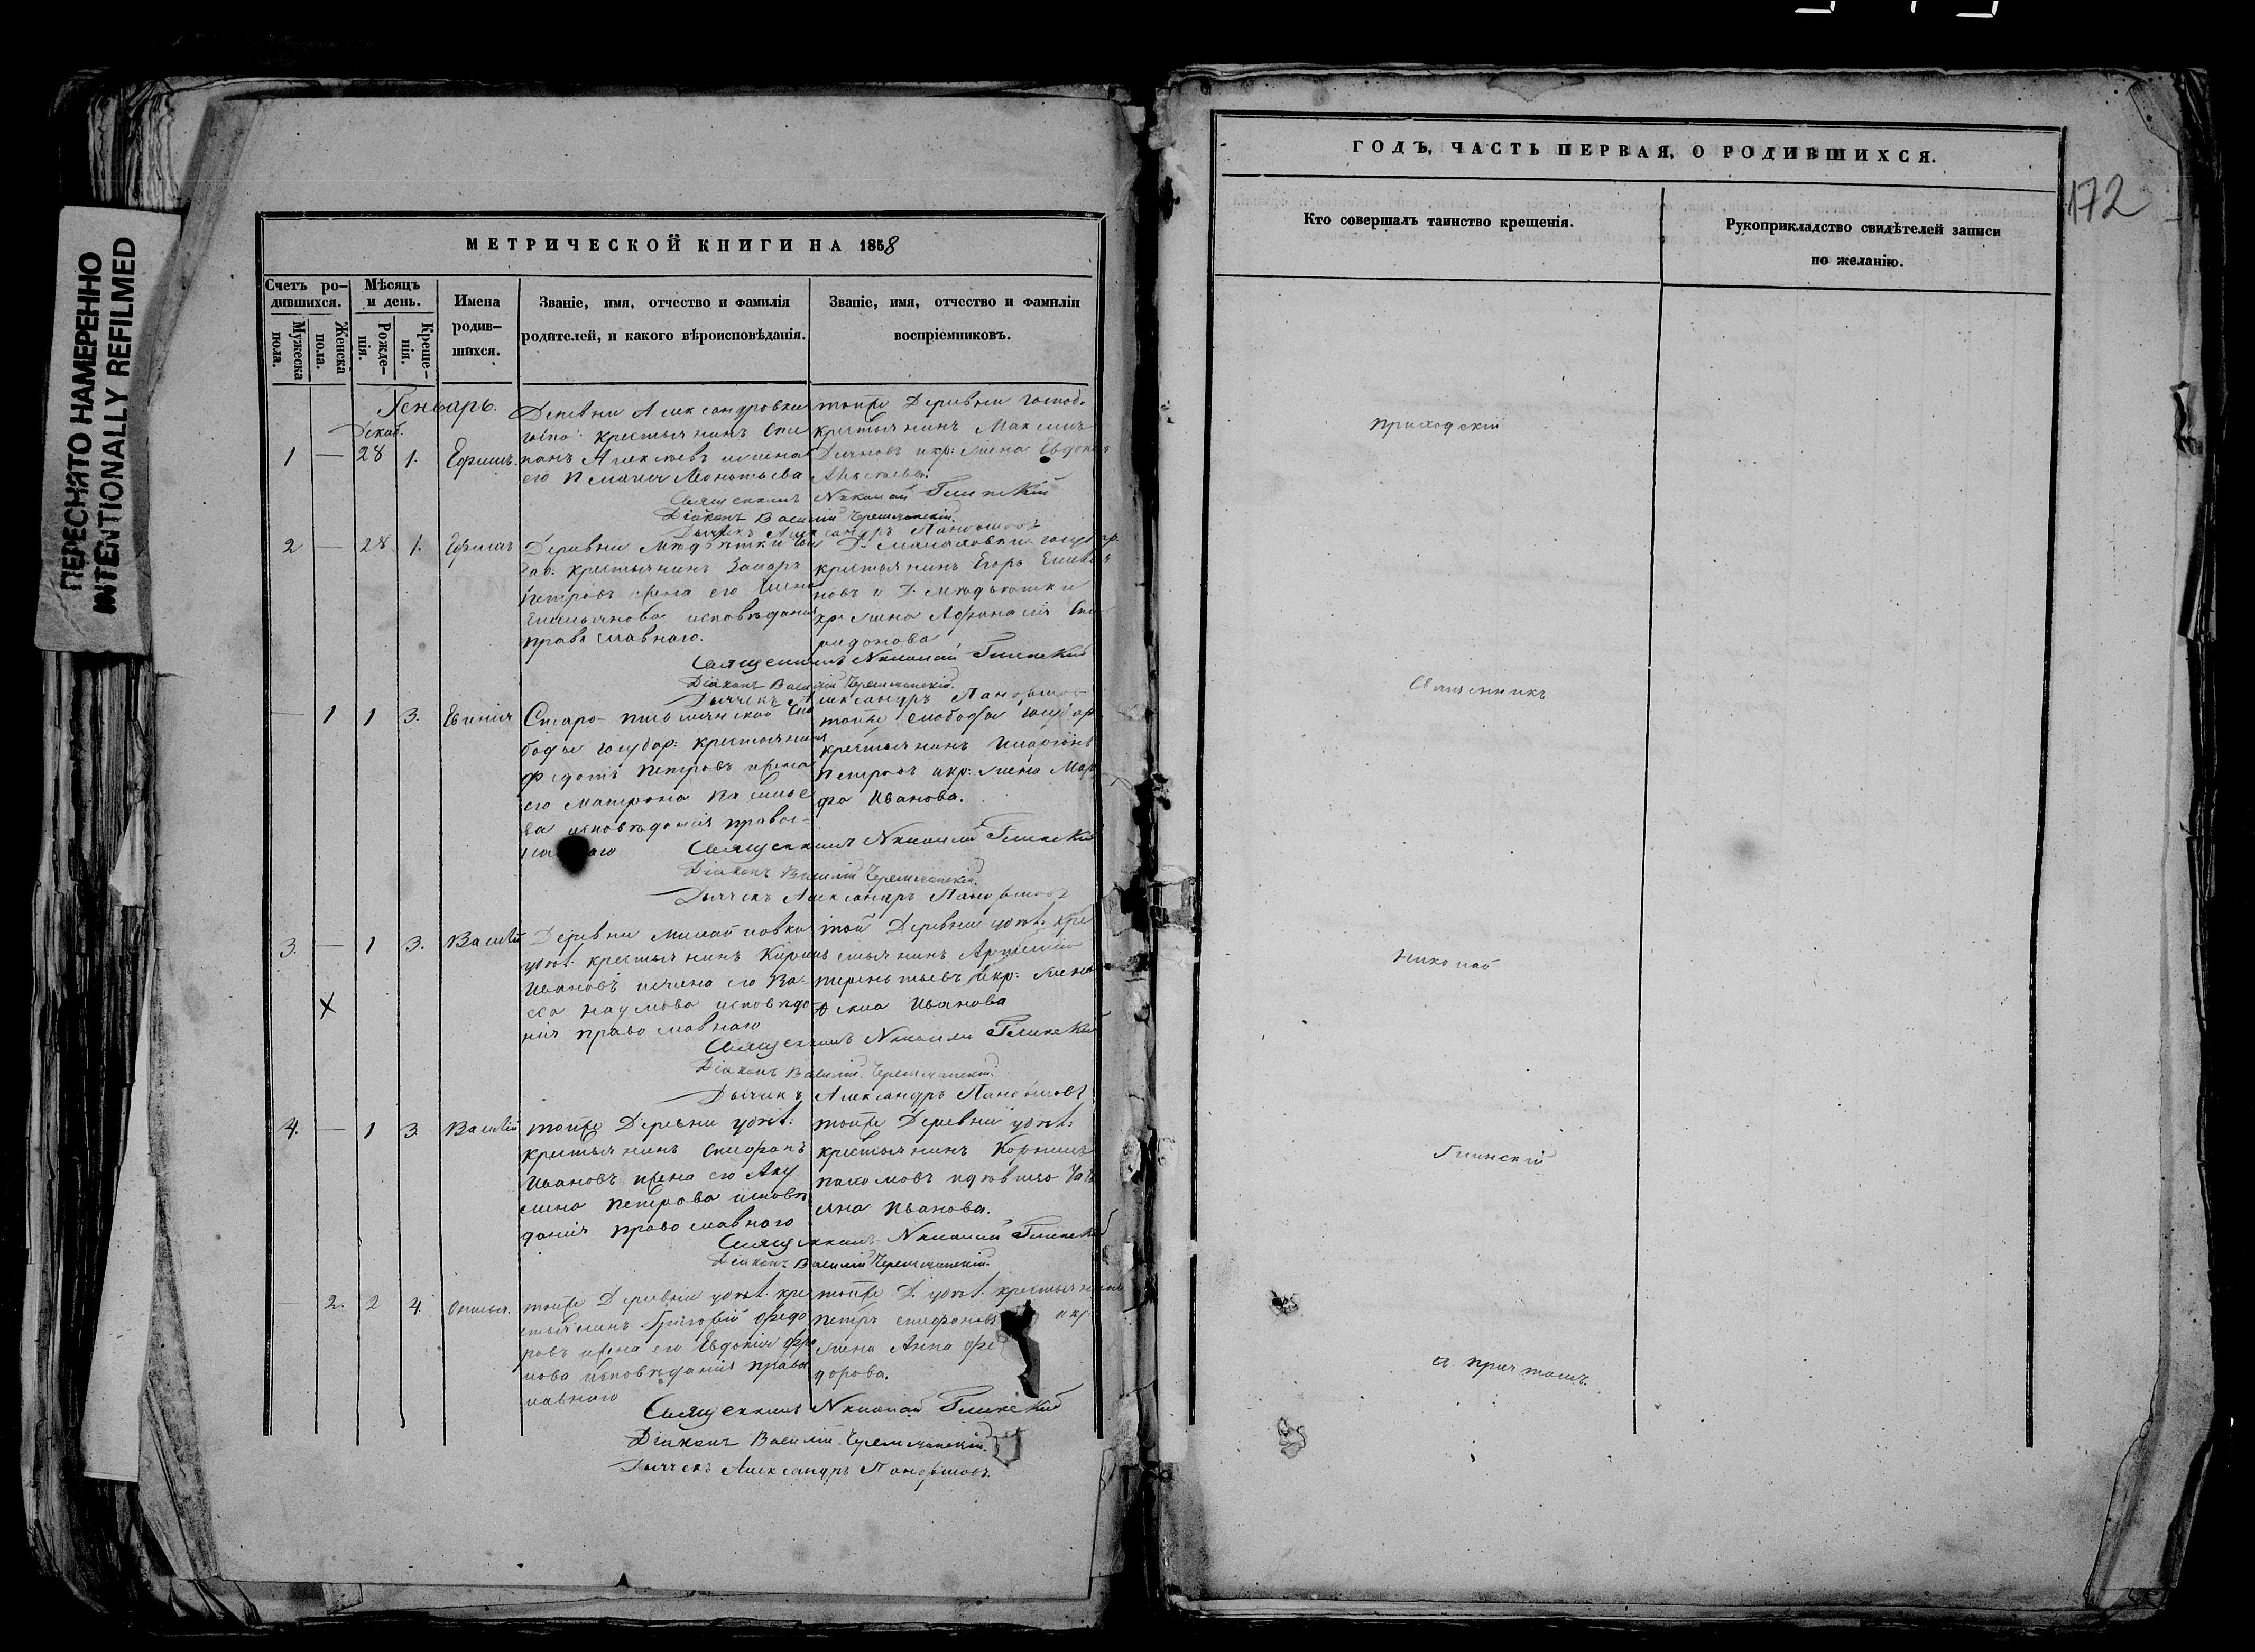 ПЕРЕСНЯТО НАМЕРЕННО
INTENTIONALLY REFILMED
МЕТРИЧЕСКОЙ КНИГИ НА 1858
Счетъ ро-
дившихся.
Мужеска пола.
Женска пола.
Мѣсяцъ
и день.
Рожде-
нія.
Креще-
нія.
Имена
родив-
шихся.
Званіе, имя, отчество и фамилія
родителей, и какого вѣроисповѣданія.
Званіе, имя, отчество и фамилія
воспріемниковъ.
Генварь.
Декаб.
1 — 28 1. Ефимъ.
Деревни Александровки
госпо: крестьянинъ Сте
панъ Алексѣевъ и жена
его Леонтьева
тойже Деревни господ.
крестьянинъ Максимъ
и кр: жена Евдокія
Священникъ Николай Глинскій
Діаконъ Василій Черемшанскій.
Дьячекъ Александръ
2 — 28 1. Ефимъ
Деревни
дар. крестьянинъ Захаръ
Петровъ жена его Елена
Емельянова исповѣданія
православнаго.
крестьянинъ Егоръ Емелья
новъ и Д.
кр. жена Афанасія Спи
ридонова
Священникъ Николай Глинскій
Діаконъ Василій Черемшанскій.
Дьячекъ Александръ
— 1 1 3. Евгенія
Старо- Сло
боды государ: крестьянинъ
Федотъ Петровъ жена
его Матрона Василье
ва исповѣданія правос-
тойже слободы государ
крестьянинъ Иларіонъ
Петровъ и кр: жена Мар
фа Иванова.
Священникъ Николай Глинскій
Діаконъ Василій Черемшанскій.
Дьячекъ Александръ
3. — 1 3. Василій
Деревни Михайловки
удѣл. крестьянинъ Кирилъ
Ивановъ и жена его Ва-
сса Наумова исповѣда-
нія православнаго
той Деревни удѣл. кре
стьянинъ
Терентьевъ и кр: жена
Иванова
Х
Священникъ Николай Глинскій
Діаконъ Василій Черемшанскій.
Дьячекъ Александръ
4. — 1 3 Василій
тойже Деревни удѣл:
крестьянинъ Стефанъ
Ивановъ жена его Аку
лина Петрова исповѣ
данія православнаго
тойже Деревни удѣл:
крестьянинъ Корнилъ
Пахомовъ и дѣвица Тать
яна Иванова.
Священникъ Николай Глинскій
Діаконъ Василій Черемшанскій.
— 2. 2 4
тойже Деревни удѣл. кре
стьянинъ Григорій Федо
ровъ жена его Евдокія
исповѣданія право
славнаго
тойже Д. удѣл. крестьянинъ
Петръ Стефановъ и кр.
жена Анна Фе
дорова.
Священникъ Николай Глинскій
Діаконъ Василій Черемшанскій.
Дьячекъ Александръ
ГОДЪ, ЧАСТЬ ПЕРВАЯ, О РОДИВШИХСЯ.
172
Кто совершалъ таинство крещенія.
Рукоприкладство свидѣтелей записи
по желанію.
Приходскій
Священникъ
Николай
Глинскій
съ причтомъ.